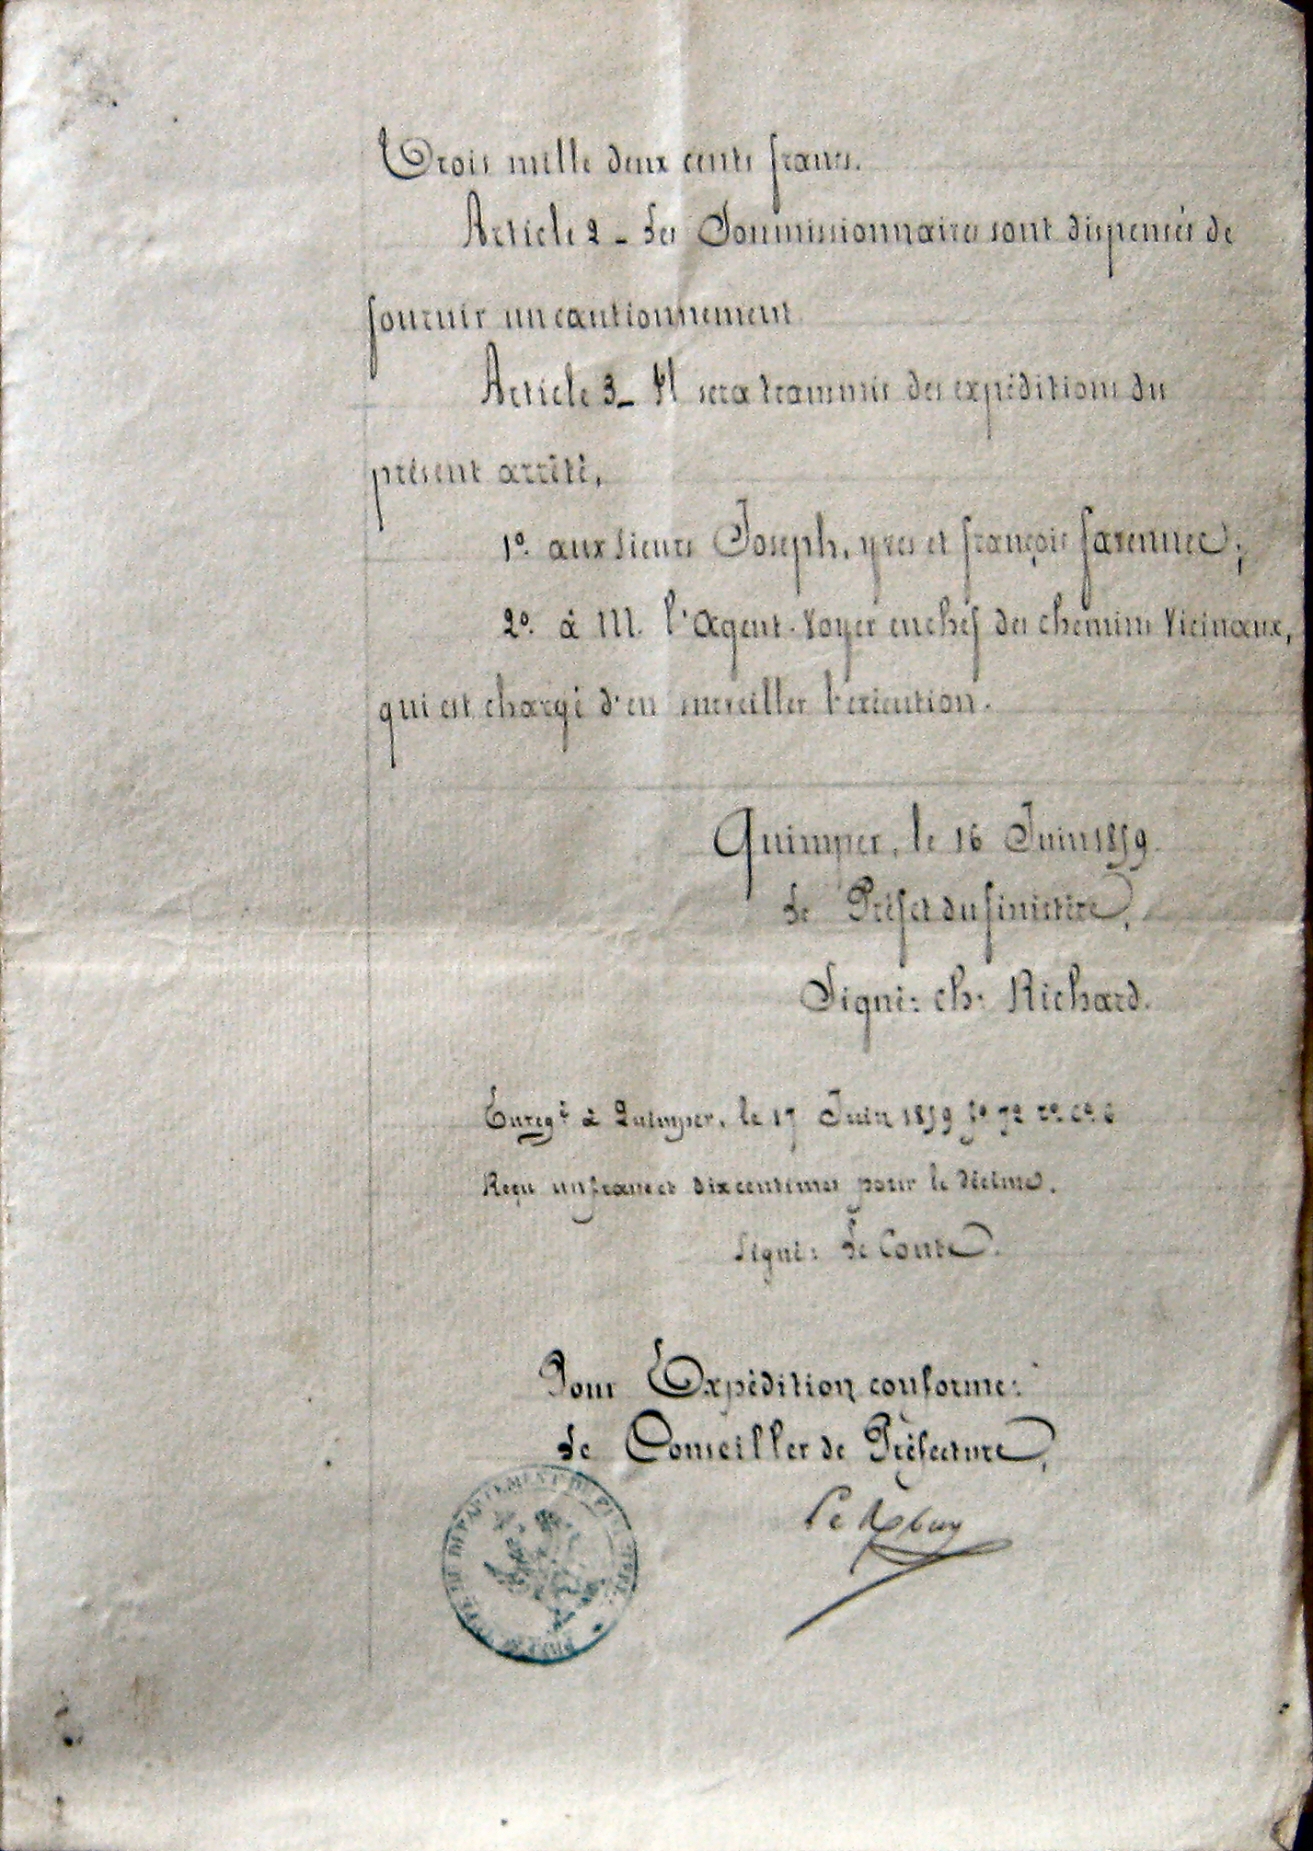 Trois mille deux cents francs.
Article 2 - Les Soumissionnaires sont dispensés de
fournir un cautionnement
Article 3 - Il sera transmis des expéditions du
présent arrêté,
1º. aux Sieurs Joseph, yves et françois favennec;
2º. à M. l'Agent-Voyer en chef des chemins Vicinaux,
qui est chargé d'en surveiller l'exécution.
Quimper, le 16 Juin 1859.
Le Préfet du finistère,
Signé: Ch. Richard.
Enregé à Quimper, le 17 Juin 1859 fº 72 rº. Cº. 6
Reçu un franc et dix centimes pour le décime.
Signé: Le Conte.
Pour Expédition conforme:
Le Conseiller de Préfecture,
DU DEPARTEMENT DU